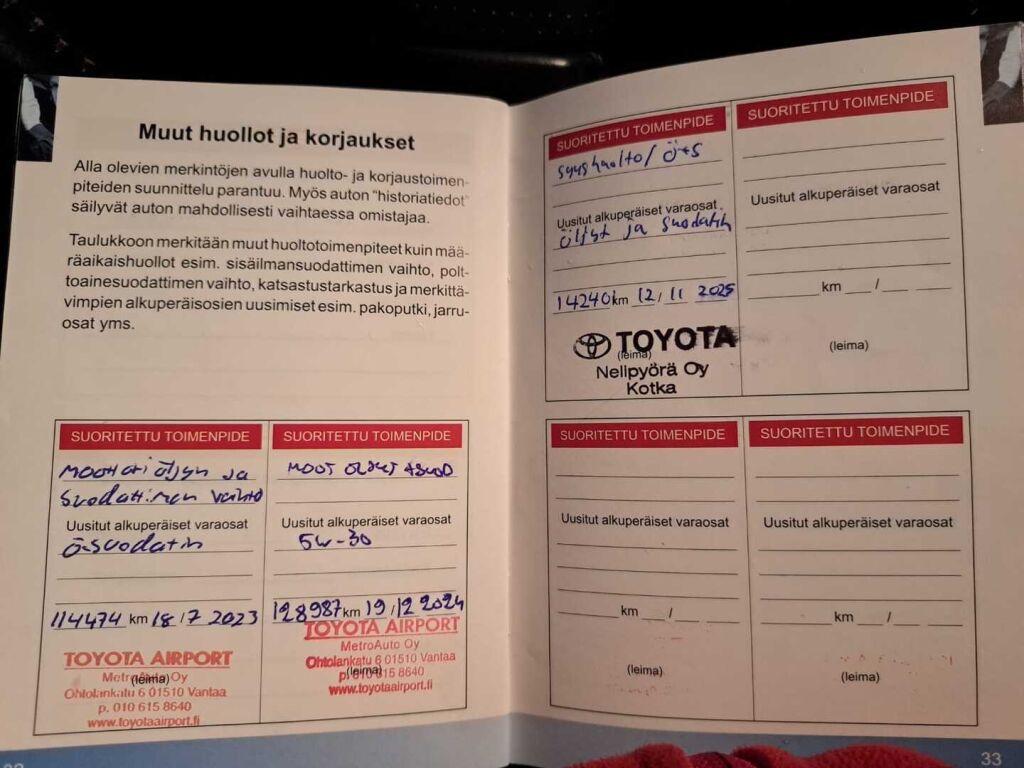 Muut huollot ja korjaukset
Alla olevien merkintöjen avulla huolto- ja korjaustoimen-
piteiden suunnittelu parantuu. Myös auton "historiatiedot"
säilyvät auton mahdollisesti vaihtaessa omistajaa.
Taulukkoon merkitään muut huoltotoimenpiteet kuin mää-
räaikaishuollot esim. sisäilmansuodattimen vaihto, polt-
toainesuodattimen vaihto, katsastustarkastus ja merkittä-
vimpien alkuperäisosien uusimiset esim. pakoputki, jarru-
osat yms.
SUORITETTU TOIMENPIDE
moottoriöljyn ja
suodattimen vaihto
Uusitut alkuperäiset varaosat
ö-suodatin
114474 km 18 / 7 2023
TOYOTA AIRPORT
MetroAuto Oy
(leima)
Ohtolankatu 6 01510 Vantaa
p. 010 615 8640
www.toyotaairport.fi
SUORITETTU TOIMENPIDE
MOOT ÖLJYT +SUOD
Uusitut alkuperäiset varaosat
5W-30
128987 km 19 / 12 2024
TOYOTA AIRPORT
MetroAuto Oy
Ohtolankatu 6 01510 Vantaa
(leima)
p. 010 615 8640
www.toyotaairport.fi
33
SUORITETTU TOIMENPIDE
syyshuolto / ö+s
Uusitut alkuperäiset varaosat
öljyt ja suodatin
14240 km 12 / 11 2025
TOYOTA
(leima)
Nelipyörä Oy
Kotka
SUORITETTU TOIMENPIDE
Uusitut alkuperäiset varaosat
km /
(leima)
SUORITETTU TOIMENPIDE
Uusitut alkuperäiset varaosat
km /
(leima)
SUORITETTU TOIMENPIDE
Uusitut alkuperäiset varaosat
km /
(leima)
33